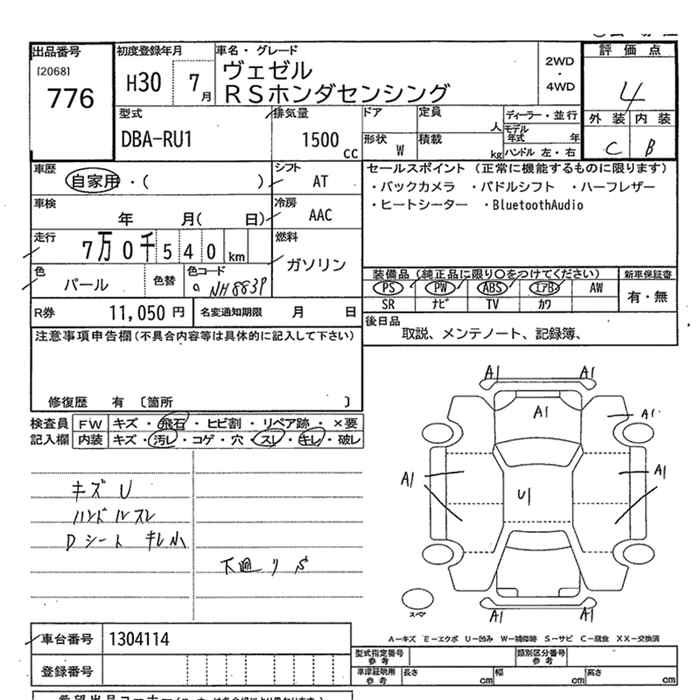 出品番号 初度登録年月 車名・グレード 評価点
[2068] 776 H30 7月 ヴェゼル 2WD・4WD 4
RSホンダセンシング
型式 排気量 ドア 定員 人 ディーラー・並行 外装 内装
DBA-RU1 1500cc 形状 W 積載 kg モデル年式 年 C B
ハンドル 左・右
車歴 シフト セールスポイント (正常に機能するものに限ります)
自家用・( ) AT ・バックカメラ ・パドルシフト ・ハーフレザー
車検 冷房 ・ヒートシーター ・BluetoothAudio
年 月( 日) AAC
走行 燃料
7万0千540km ガソリン
色 色替 色コード 装備品 (純正品に限り○をつけてください) 新車保証書
パール NH883P PS PW ABS エアB AW 有・無
SR ナビ TV カワ
R券 11,050円 名変通知期限 月 日 後日品
取説、メンテノート、記録簿、
注意事項申告欄(不具合内容等は具体的に記入して下さい)
修復歴 有 〔箇所 〕
検査員 FW キズ・飛石・ヒビ割・リペア跡・×要
記入欄 内装 キズ・汚レ・コゲ・穴・スレ・キレ・破レ
キズ U
ハンドルスレ
Dシート キレ小
下廻り S
A1 A1
A1 A1
A1 A1
U1
A1 A1
スペア
A-キズ E-エクボ U-凹み W-補修跡 S-サビ C-腐食 XX-交換済
車台番号 1304114 型式指定番号 参考 類別区分番号 参考
登録番号 車庫証明用 参考 長さ cm 幅 cm 高さ cm